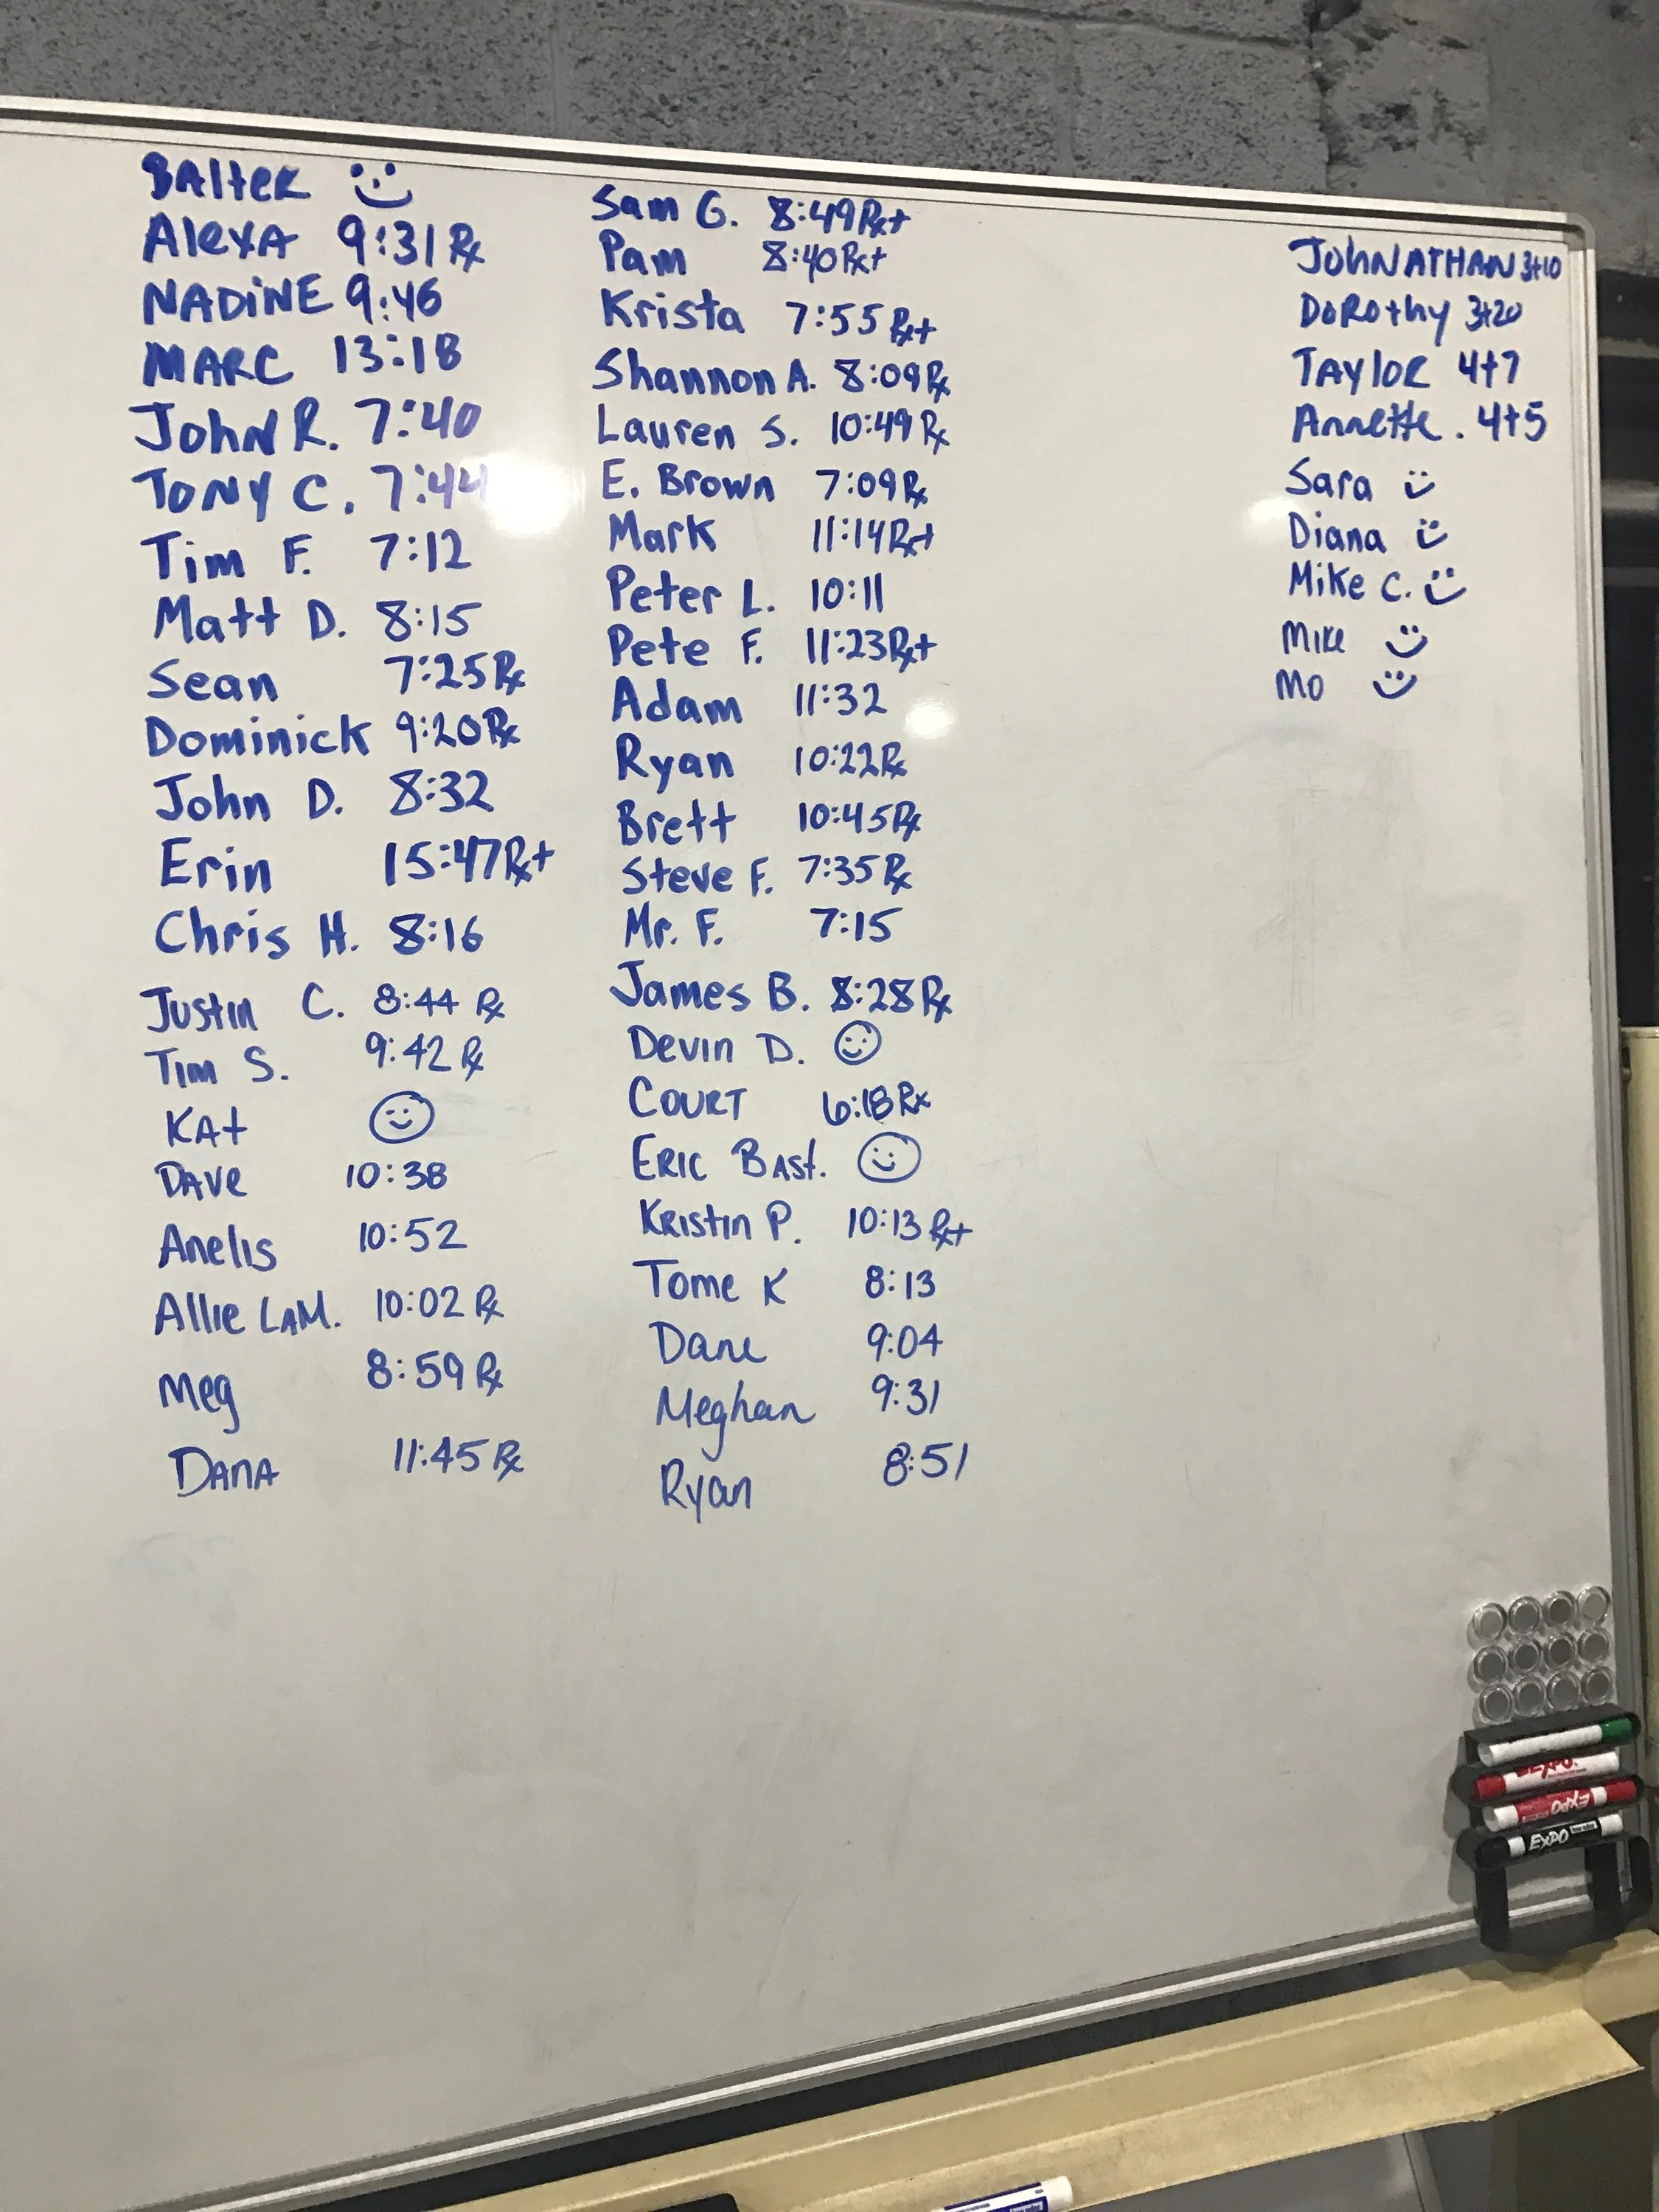 BAlteR
AlexA 9:31 Rx
NADiNE 9:46
MARC 13:18
JohN R. 7:40
ToNY C. 7:44
Tim F. 7:12
Matt D. 8:15
Sean 7:25 Rx
Dominick 9:20 Rx
John D. 8:32
Erin 15:47 Rx+
Chris H. 8:16
Justin C. 8:44 Rx
Tim S. 9:42 Rx
KAt
DAve 10:38
Anelis 10:52
Allie LAM. 10:02 Rx
Meg 8:59 Rx
DANA 11:45 Rx
Sam G. 8:49 Rx+
Pam 8:40 Rx+
Krista 7:55 Rx+
Shannon A. 8:09 Rx
Lauren S. 10:49 Rx
E. Brown 7:09 Rx
Mark 11:14 Rx+
Peter L. 10:11
Pete F. 11:23 Rx+
Adam 11:32
Ryan 10:22 Rx
Brett 10:45 Rx
Steve F. 7:35 Rx
Mr. F. 7:15
James B. 8:28 Rx
Devin D.
COURT 6:18 Rx
ERIC BASt.
KRistin P. 10:13 Rx+
Tome K 8:13
Dane 9:04
Meghan 9:31
Ryan 8:51
JOhNATHAN 3+10
DoRothy 3+20
TAYlOR 4+7
Annette. 4+5
Sara
Diana
Mike C.
Mike
Mo
EXPO
EXPO
EXPO